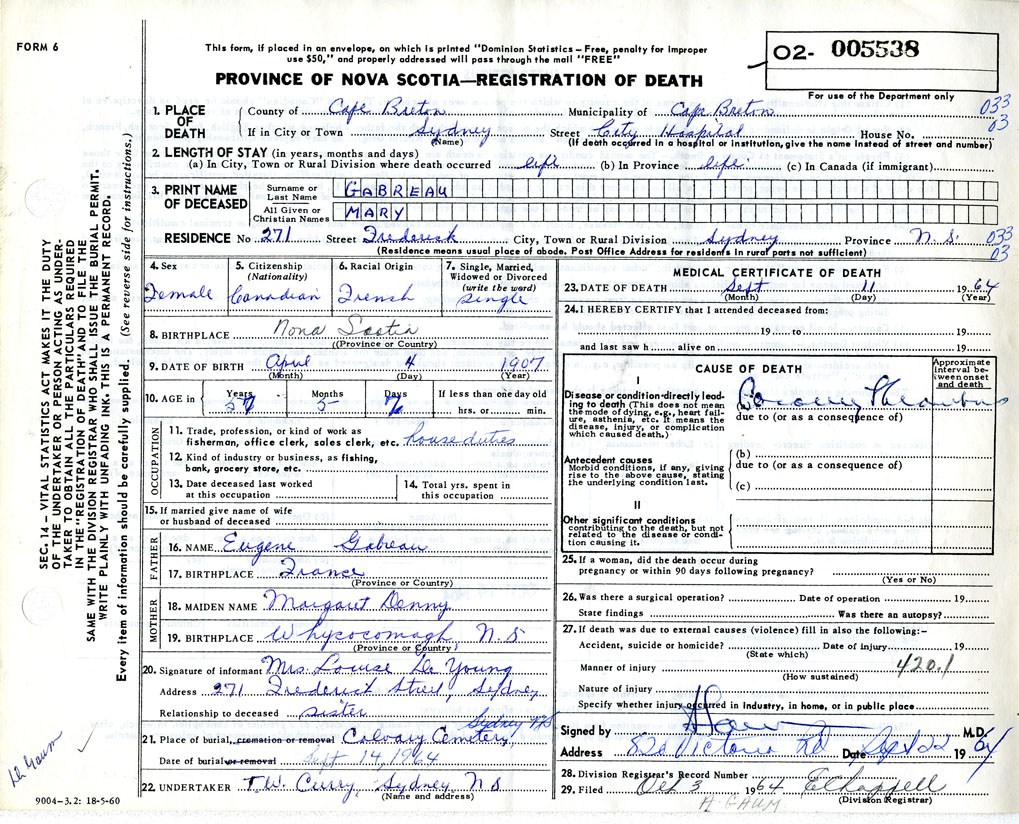 FORM 6
This form, if placed in an envelope, on which is printed "Dominion Statistics – Free, penalty for improper
use $50," and properly addressed will pass through the mail "FREE"
O2- 005538
For use of the Department only
PROVINCE OF NOVA SCOTIA—REGISTRATION OF DEATH
SEC. 14 – VITAL STATISTICS ACT MAKES IT THE DUTY
OF THE UNDERTAKER OR PERSON ACTING AS UNDER-
TAKER TO OBTAIN ALL THE PARTICULARS REQUIRED
IN THE "REGISTRATION OF DEATH" AND TO FILE THE
SAME WITH THE DIVISION REGISTRAR WHO SHALL ISSUE THE BURIAL PERMIT.
WRITE PLAINLY WITH UNFADING INK. THIS IS A PERMANENT RECORD.
Every item of information should be carefully supplied. (See reverse side for instructions.)
1. PLACE OF DEATH
County of Cape Breton Municipality of Cape Breton 033
03
If in City or Town Sydney Street City Hospital House No.
(Name) (If death occurred in a hospital or institution, give the name instead of street and number)
2. LENGTH OF STAY (in years, months and days)
(a) In City, Town or Rural Division where death occurred life (b) In Province life (c) In Canada (if immigrant)
3. PRINT NAME OF DECEASED
Surname or Last Name GABREAU
All Given or Christian Names MARY
RESIDENCE No. 271 Street Frederick City, Town or Rural Division Sydney Province N.S. 033
03
(Residence means usual place of abode. Post Office Address for residents in rural parts not sufficient)
4. Sex Female
5. Citizenship (Nationality) Canadian
6. Racial Origin French
7. Single, Married, Widowed or Divorced (write the word) Single
8. BIRTHPLACE Nova Scotia
((Province or Country)
9. DATE OF BIRTH April 4 1907
(Month) (Day) (Year)
10. AGE in Years 57 Months 5 Days 7 If less than one day old
hrs. or min.
OCCUPATION
11. Trade, profession, or kind of work as
fisherman, office clerk, sales clerk, etc. house duties
12. Kind of industry or business, as fishing,
bank, grocery store, etc.
13. Date deceased last worked
at this occupation
14. Total yrs. spent in
this occupation
15. If married give name of wife
or husband of deceased
FATHER
16. NAME Eugene Gabreau
17. BIRTHPLACE France
(Province or Country)
MOTHER
18. MAIDEN NAME Margaret Denny
19. BIRTHPLACE Whycocomagh N.S
(Province or Country)
20. Signature of informant Mrs. Louise De Young
Address 271 Frederick Street Sydney
Relationship to deceased sister
Sydney NS
21. Place of burial, cremation or removal Calvary Cemetery,
Date of burial or removal Sept 14, 1964
22. UNDERTAKER T.W. Curry, Sydney N S
(Name and address)
9004-3.2: 18-5-60
MEDICAL CERTIFICATE OF DEATH
23. DATE OF DEATH Sept 11 1964
(Month) (Day) (Year)
24. I HEREBY CERTIFY that I attended deceased from:
19 to 19
and last saw h alive on 19
CAUSE OF DEATH
Approximate interval between onset and death
I
Disease or condition directly lead-
ing to death (This does not mean
the mode of dying, e.g., heart fail-
ure, asthenia, etc. It means the
disease, injury, or complication
which caused death.)
(a) Coronary Thrombus
due to (or as a consequence of)
Antecedent causes
Morbid conditions, if any, giving
rise to the above cause, stating
the underlying condition last.
(b)
due to (or as a consequence of)
(c)
II
Other significant conditions
contributing to the death, but not
related to the disease or condi-
tion causing it.
25. If a woman, did the death occur during
pregnancy or within 90 days following pregnancy?
(Yes or No)
26. Was there a surgical operation? Date of operation 19
State findings Was there an autopsy?
27. If death was due to external causes (violence) fill in also the following:–
Accident, suicide or homicide? Date of injury 19
(State which)
Manner of injury 420.1
(How sustained)
Nature of injury
Specify whether injury occurred in Industry, in home, or in public place
Signed by M.D.
Address 820 Victoria Rd Date Sept 22 1964
28. Division Registrar's Record Number
29. Filed Oct 3 1964 E Chappell
(Division Registrar)
H. GAUM